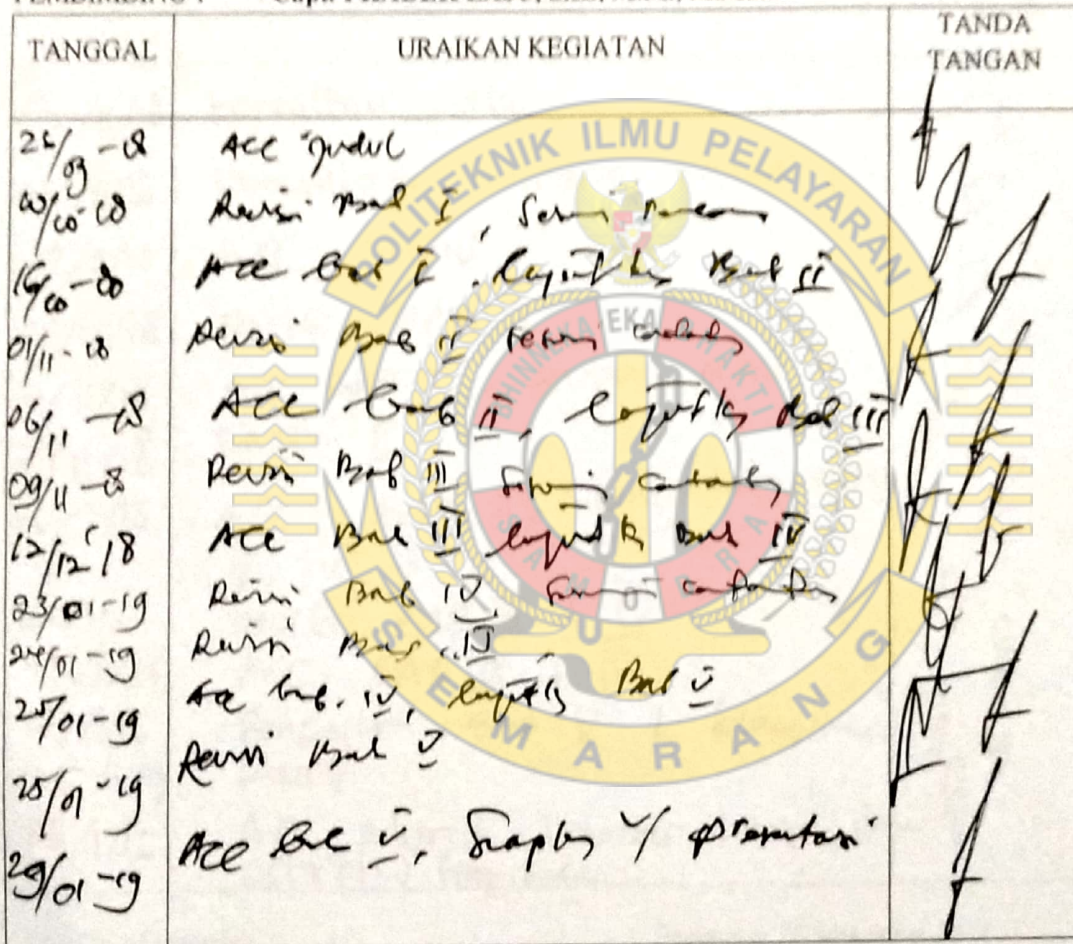 TANGGAL URAIKAN KEGIATAN TANDA TANGAN
26/09-18 Acc Judul
Revisi Bab I, Sesuai
16/10-18 Acc Bab I, lanjutkan Bab II
01/11-18 Revisi Bab II sesuai catatan
06/11-18 Acc Bab II, lanjutkan Bab III
09/11-18 Revisi Bab III Sesuai catatan
12/12'18 Acc Bab III lanjutkan Bab IV
23/01-19 Revisi Bab IV, Sesuai catatan
24/01-19 Revisi Bab IV
25/01-19 Acc Bab. IV, lanjutkan Bab V
25/01-19 Revisi Bab V
29/01-19 Acc Bab V, Siapkan u/ presentasi
POLITEKNIK ILMU PELAYARAN
BHINNEKA EKA BHAKTI
SAMUDRA
SEMARANG